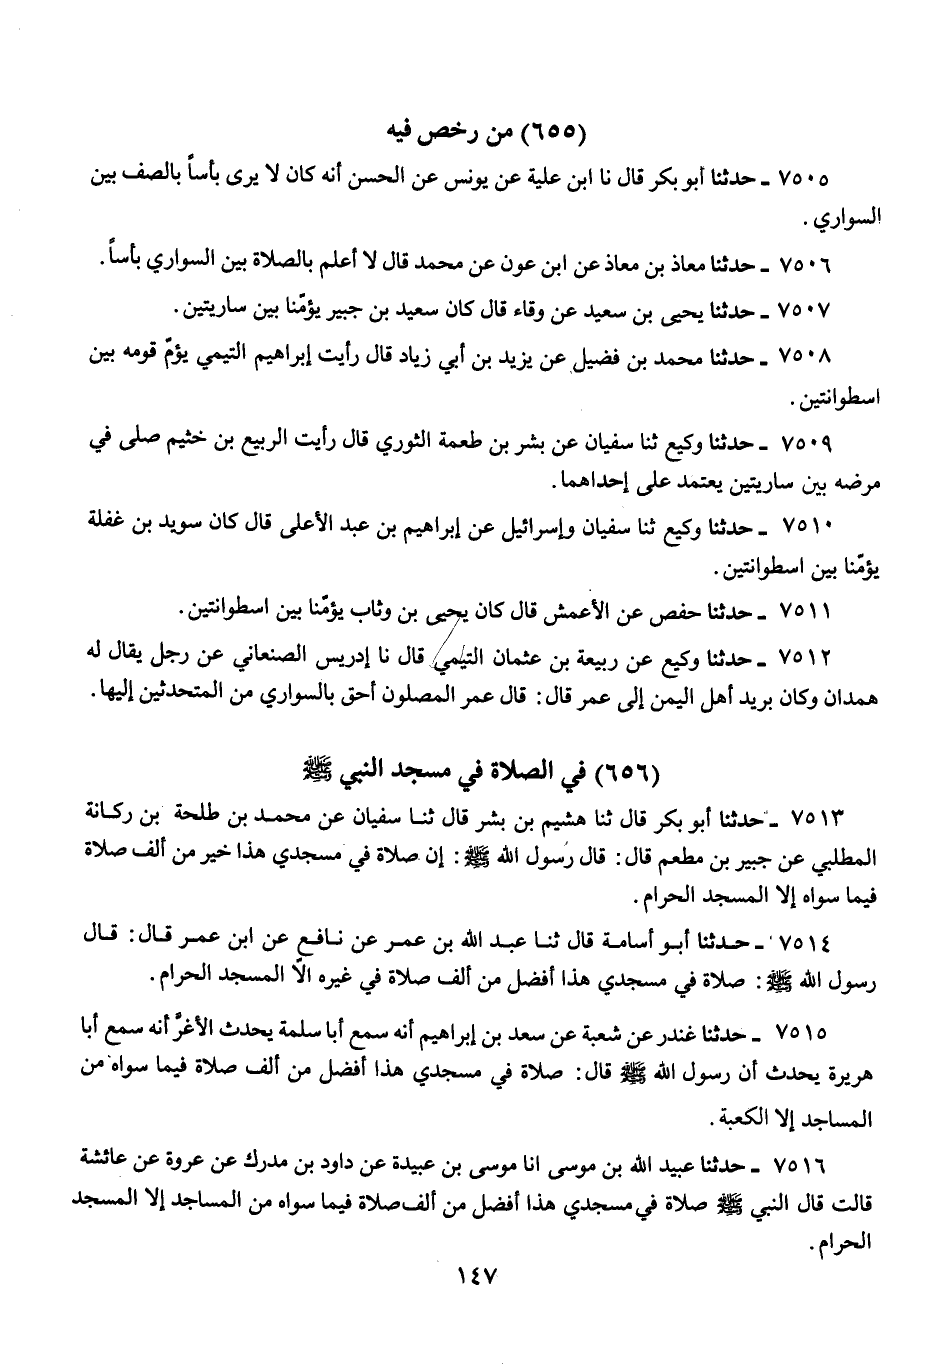 (٦٥٥) من رخص فيه
٧٥٠٥ ـ حدثنا أبو بكر قال نا ابن علية عن يونس عن الحسن أنه كان لا يرى بأساً بالصف بين
السواري .
٧٥٠٦ ـ حدثنا معاذ بن معاذ عن ابن عون عن محمد قال لا أعلم بالصلاة بين السواري بأساً.
٧٥٠٧ ـ حدثنا يحيى بن سعيد عن وقاء قال كان سعيد بن جبير يؤمّنا بين ساريتين.
٧٥٠٨ ـ حدثنا محمد بن فضيل عن يزيد بن أبي زياد قال رأيت إبراهيم التيمي يؤمّ قومه بين
اسطوانتين.
٧٥٠٩ ـ حدثنا وكيع ثنا سفيان عن بشر بن طعمة الثوري قال رأيت الربيع بن خثيم صلى في
مرضه بين ساريتين يعتمد على إحداهما.
٧٥١٠ ـ حدثنا وكيع ثنا سفيان وإسرائيل عن إبراهيم بن عبد الأعلى قال كان سويد بن غفلة
يؤمّنا بين اسطوانتين.
٧٥١١ ـ حدثنا حفص عن الأعمش قال كان يحيى بن وثاب يؤمّنا بين اسطوانتين.
٧٥١٢ ـ حدثنا وكيع عن ربيعة بن عثمان التيمي قال نا إدريس الصنعاني عن رجل يقال له
همدان وكان بريد أهل اليمن إلى عمر قال: قال عمر المصلون أحق بالسواري من المتحدثين إليها.
(٦٥٦) في الصلاة في مسجد النبي ﷺ
٧٥١٣ ـ حدثنا أبو بكر قال ثنا هشيم بن بشر قال ثنا سفيان عن محمد بن طلحة بن ركانة
المطلبي عن جبير بن مطعم قال: قال رسول الله ﷺ: إن صلاة في مسجدي هذا خير من ألف صلاة
فيما سواه إلا المسجد الحرام.
٧٥١٤ ـ حدثنا أبو أسامة قال ثنا عبد الله بن عمر عن نافع عن ابن عمر قال: قال
رسول الله ﷺ: صلاة في مسجدي هذا أفضل من ألف صلاة في غيره الّا المسجد الحرام.
٧٥١٥ ـ حدثنا غندر عن شعبة عن سعد بن إبراهيم أنه سمع أبا سلمة يحدث الأغرَّ أنه سمع أبا
هريرة يحدث أن رسول الله ﷺ قال: صلاة في مسجدي هذا أفضل من ألف صلاة فيما سواه من
المساجد إلا الكعبة.
٧٥١٦ ـ حدثنا عبيد الله بن موسى انا موسى بن عبيدة عن داود بن مدرك عن عروة عن عائشة
قالت قال النبي ﷺ صلاة في مسجدي هذا أفضل من ألف صلاة فيما سواه من المساجد إلا المسجد
الحرام.
١٤٧